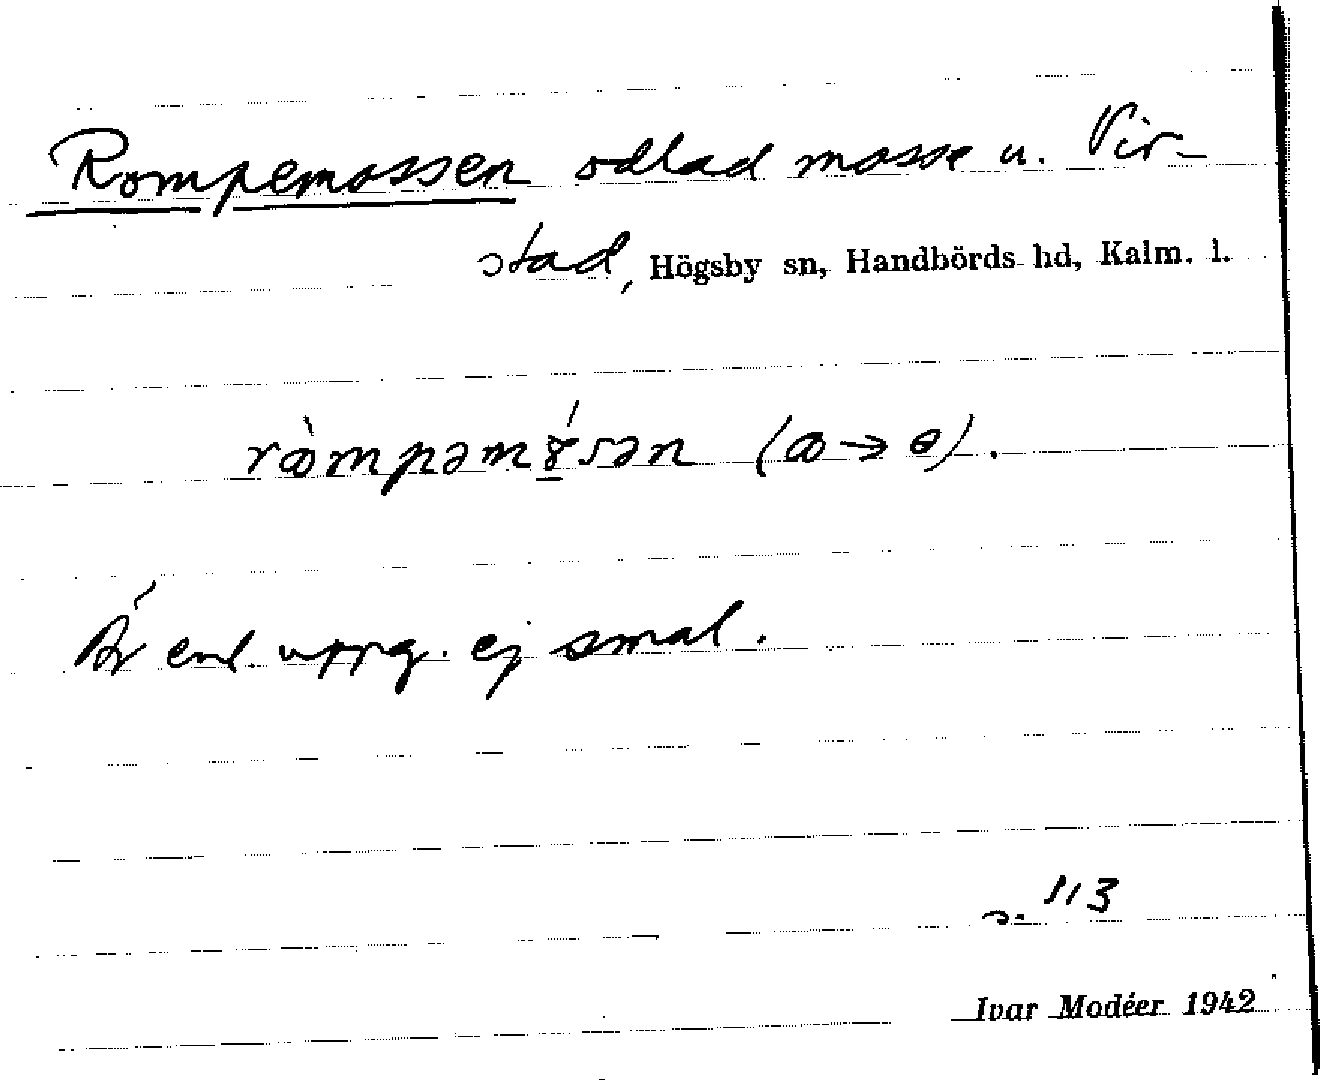 Rompemossen odlad mosse u. Vir-
stad, Högsby sn, Handbörds hd, Kalm. l.
Är enl. uppg. ej smal.
s. 113
Ivar Modéer 1942